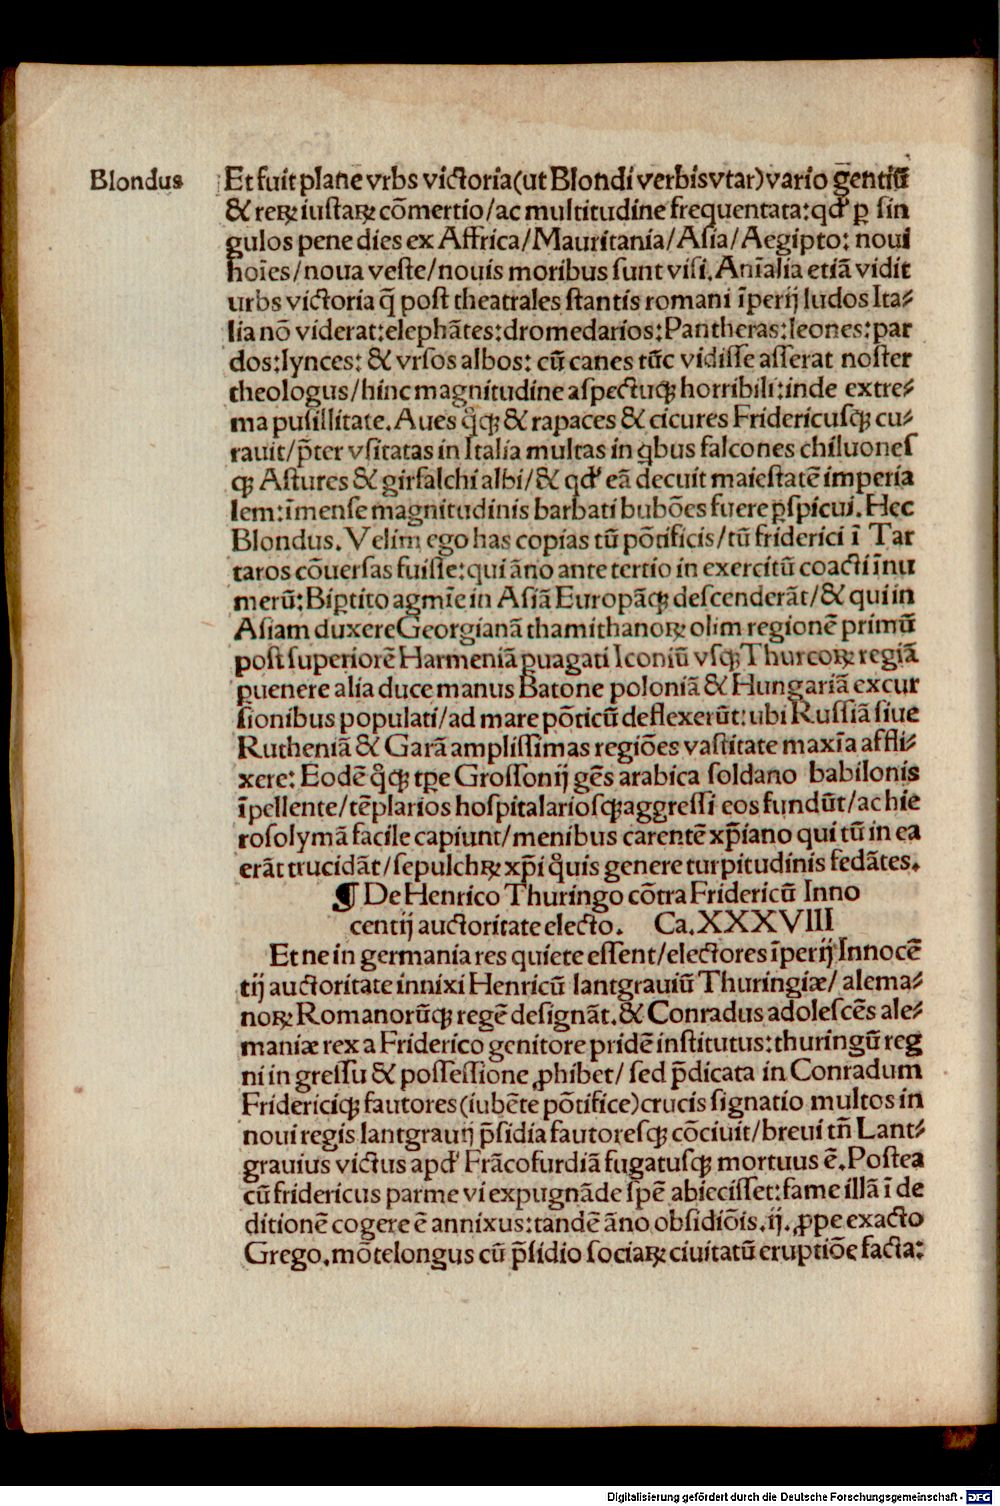 Blondus
Et fuit plane vrbs victoria(ut Blondi verbis vtar)vario gentiū
& reꝝ iustaꝝ cōmertio/ac multitudine frequentata:qd' ꝑ sin
gulos pene dies ex Affrica/Mauritania/Asia/Aegipto: noui
hoīes/noua veste/nouis moribus sunt visi. Anīalia etiā vidit
urbs victoria q̄ post theatrales stantis romani īperij ludos Ita⸗
lia nō viderat:elephātes:dromedarios:Pantheras:leones:par
dos:lynces: & vrsos albos: cū canes tūc vidisse asserat noster
theologus/hinc magnitudine aspectuqꝫ horribili:inde extre⸗
ma pusillitate. Aues qͦqꝫ & rapaces & cicures Fridericusqꝫ cu⸗
rauit/p̄ter vsitatas in Italia multas in qbus falcones chiluones
qꝫ Astures & girfalchi albi/& qd' eā decuit maiestatē imperia
lem:īmense magnitudinis barbati bubōes fuere ꝑspicui. Hec
Blondus. Velim ego has copias tū pōtificis/tū friderici ī Tar
taros cōuersas fuisse:qui āno ante tertio in exercitū coacti īnu
merū: Biꝑtito agmīe in Asiā Europāqꝫ descenderāt/& qui in
Asiam duxere Georgianā thamithanoꝝ olim regionē primū
post superiorē Harmeniā ꝑuagati Iconiū vsqꝫ Thurcoꝝ regiā
ꝑuenere alia duce manus Batone poloniā & Hungariā excur
sionibus populati/ad mare pōticū deflexerūt: ubi Russiā siue
Rutheniā & Garā amplissimas regiōes vastitate maxīa affli⸗
xere: Eodē qͦqꝫ tꝑe Grossonij gēs arabica soldano babilonis
īpellente/tēplarios hospitalariosqꝫ aggressi eos fundūt/ac hie
rosolymā facile capiunt/menibus carentē xp̄iano qui tū in ea
erāt trucidāt/sepulchꝝ xp̄i qͣuis genere turpitudinis fedātes.
¶ De Henrico Thuringo cōtra Fridericū Inno
centij auctoritate electo. Ca. XXXVIII
Et ne in germania res quiete essent/electores īperij Innocē
tij auctoritate innixi Henricū lantgrauiū Thuringiæ/ alema⸗
noꝝ Romanorūqꝫ regē designāt. & Conradus adolescēs ale⸗
maniæ rex a Friderico genitore pridē institutus:thuringū reg
ni in gressu & possessione ꝓhibet/ sed p̄dicata in Conradum
Fridericiqꝫ fautores(iubēte pōtifice)crucis signatio multos in
noui regis lantgrauij p̄sidia fautoresqꝫ cōciuit/breui tn̄ Lant⸗
grauius victus apd' Frācofurdiā fugatusqꝫ mortuus ē. Postea
cū fridericus parme vi expugnāde spē abiecisset:fame illā ī de
ditionē cogere ē annixus:tandē āno obsidiōis .ij. ꝓpe exacto
Grego. mōtelongus cū p̄sidio sociaꝝ ciuitatū eruptiōe facta:
Digitalisierung gefördert durch die Deutsche Forschungsgemeinschaft - DFG